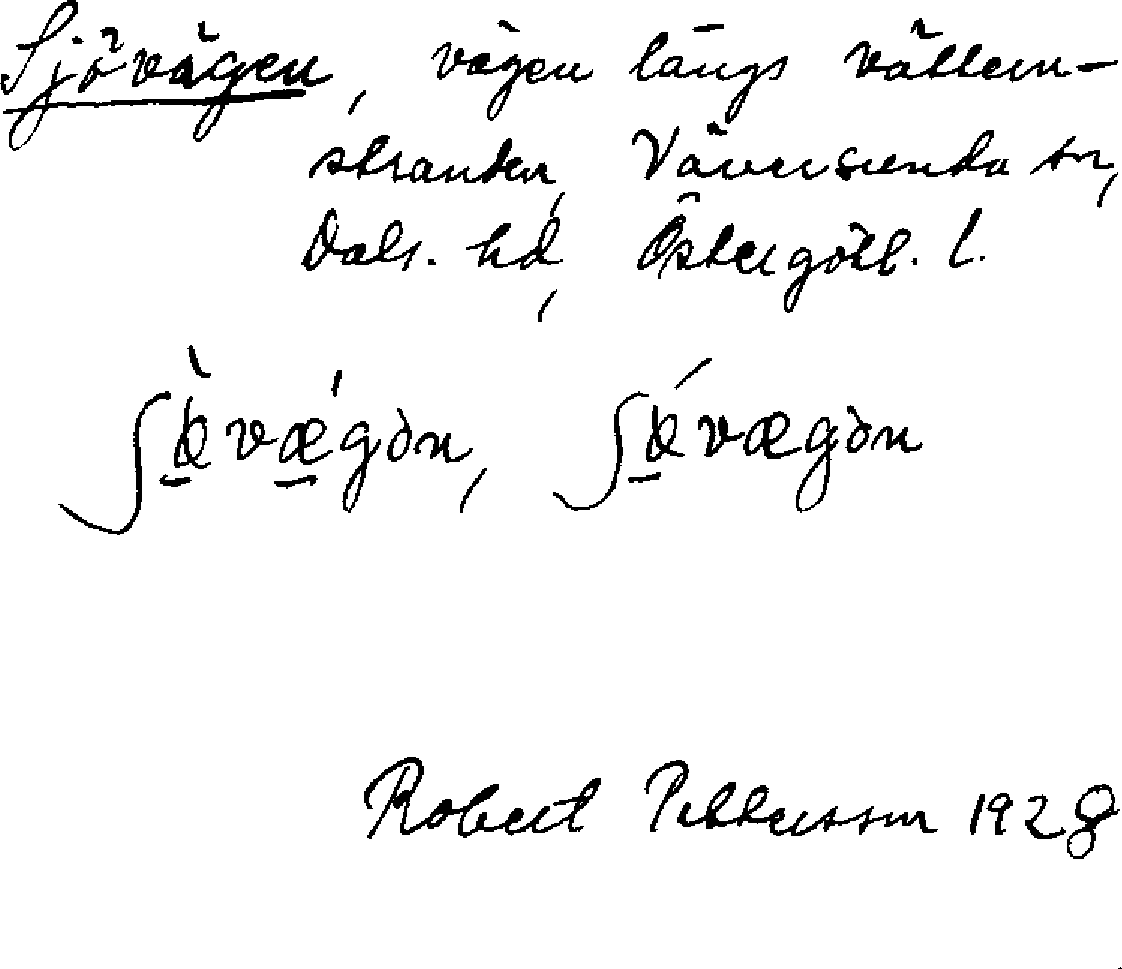 Sjövägen, vägen längs Vättern-
stranden, Väversunda sn,
Dals. hd, Östergötl. l.
ʃø̠̀vǽ̠gən, ʃǿ̠vægən
Robert Pettersson 1928